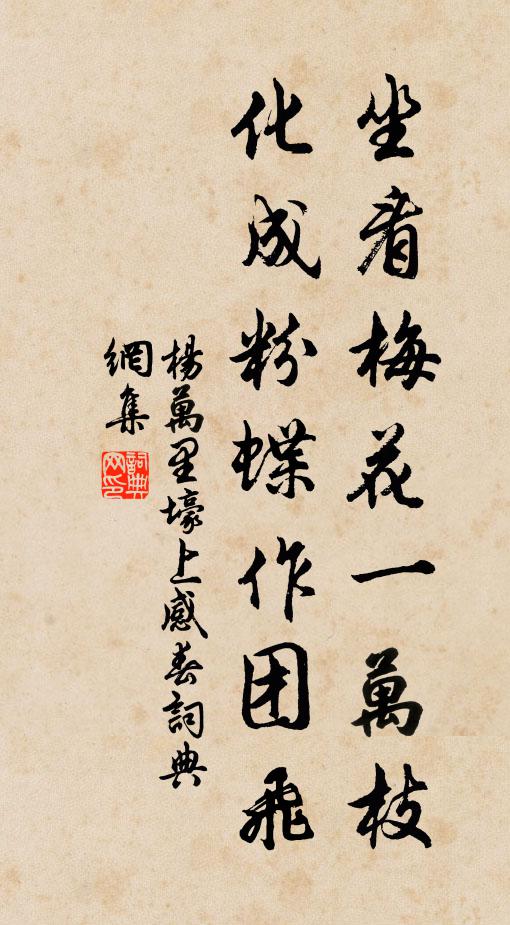 坐看梅花一萬枝
化成粉蝶作团飛
楊萬里壕上感春詞典
網集
詞典網印